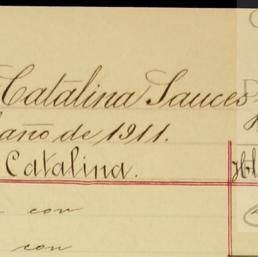 Catalina Sauces
año de 1911.
Catalina.
con
con